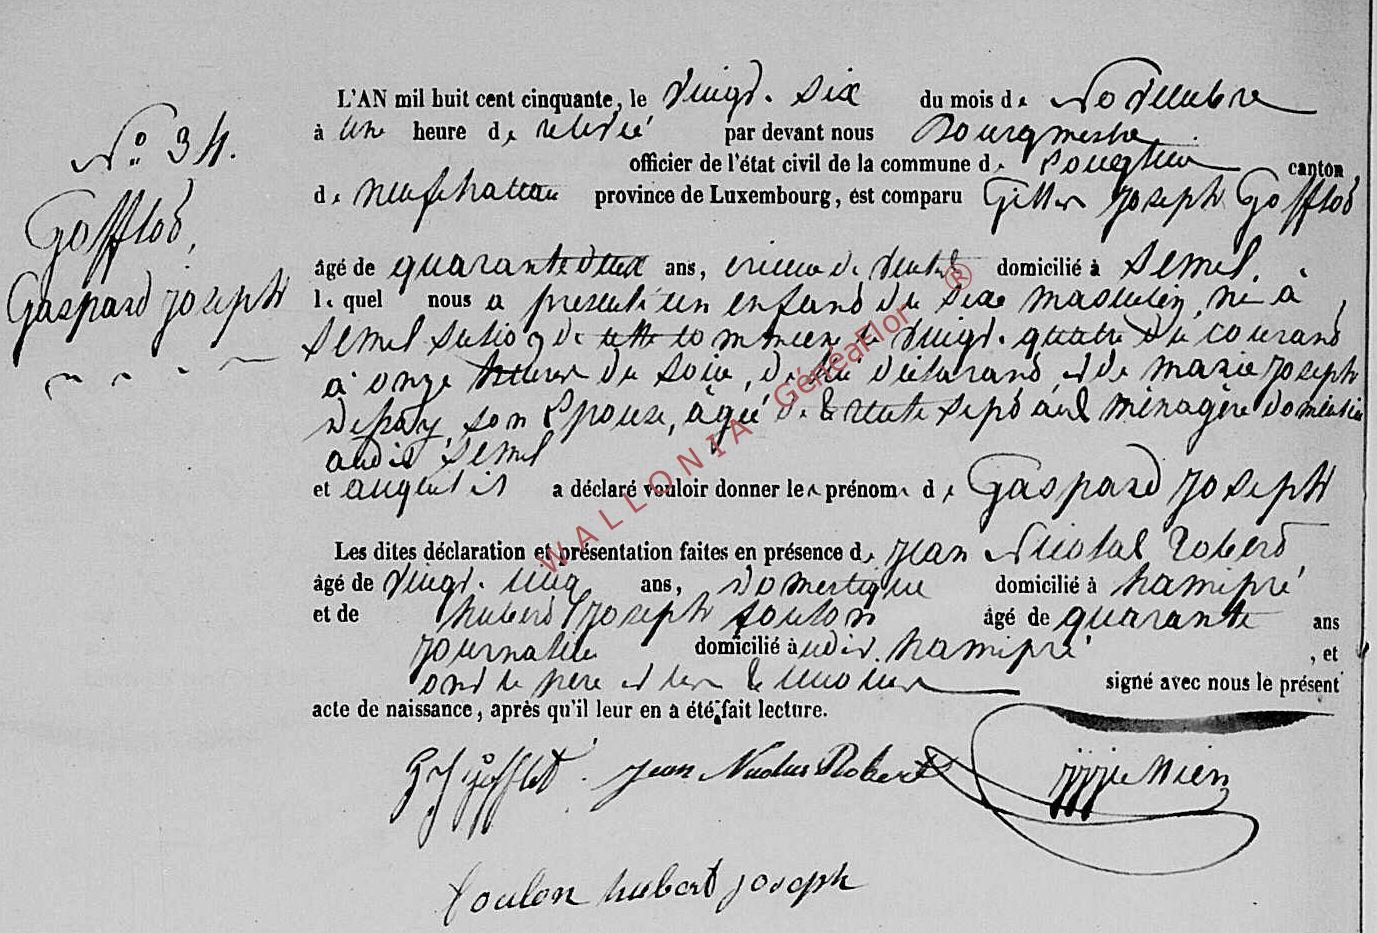 N° 34.
Gofflot,
Gaspard Joseph
L'AN mil huit cent cinquante, le vingt-six du mois de Novembre
à une heure de relevée par devant nous Bourgmestre
officier de l'état civil de la commune de canton
de neufchateau province de Luxembourg, est comparu Gilles Joseph Gofflot
âgé de quarante deux ans, domicilié à Semel.
lequel nous a presenté un enfant du sexe masculin, né à
Semel section de cette commune le vingt-quatre du courant
à onze heures du soir, de lui déclarant, et de marie Joseph
son Epouse, âgée de trente sept ans ménagère domiciliée
audit Semel
et auquel il a déclaré vouloir donner les prénoms de Gaspard Joseph
Les dites déclaration et présentation faites en présence de Jean Nicolas Robert
âgé de vingt-cinq ans, Domestique domicilié à hamipré
et de hubert Joseph foulon âgé de quarante ans
Journalier domicilié audit hamipré, et
ont le père et les témoins signé avec nous le présent
acte de naissance, après qu'il leur en a été fait lecture.
G J jofflot Jean Nicolas Robert
foulon hubert joseph
WALLONIA GénéaFlor ®